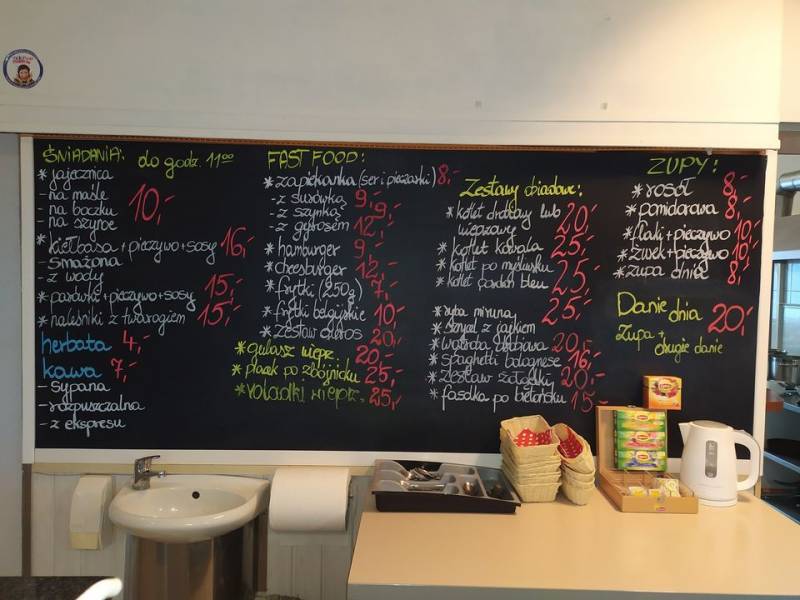 ŚNIADANIA: do godz. 11⁰⁰
* jajecznica
- na maśle
- na boczku 10,-
- na szynce
* kiełbasa + pieczywo + sosy 16,-
- smażona
- z wody
* parówki + pieczywo + sosy 15,-
* naleśniki z twarogiem 15,-
herbata 4,-
kawa 7,-
- sypana
- rozpuszczalna
- z ekspresu
FAST FOOD:
* zapiekanka (ser i pieczarki) 8,-
- z surówką 9,-
- z szynką 9,-
- z gyrosem 12,-
* hamburger 9,-
* cheesburger 12,-
* frytki (250g) 7,-
* frytki belgijskie 10,-
* zestaw gyros 20,-
* gulasz wieprz. 20,-
* placek po zbójnicku 25,-
* roladki wieprz. 25,-
Zestawy obiadowe:
* kotlet drobiowy lub
wieprzowy 20,-
* kotlet 25,-
* kotlet po myśliwsku
* kotlet pordon bleu 25,-
* ryba miruna 25,-
* szpinak z jajkiem
* wątróbka drobiowa 20,-
* spaghetti bolognese 16,-
* zestaw 20,-
* fasolka po bretońsku 15,-
ZUPY:
* rosół 8,-
* pomidorowa 8,-
* flaki + pieczywo 10,-
* żurek + pieczywo 10,-
* zupa dnia 8,-
Danie dnia 20,-
Zupa +
drugie danie
Lipton